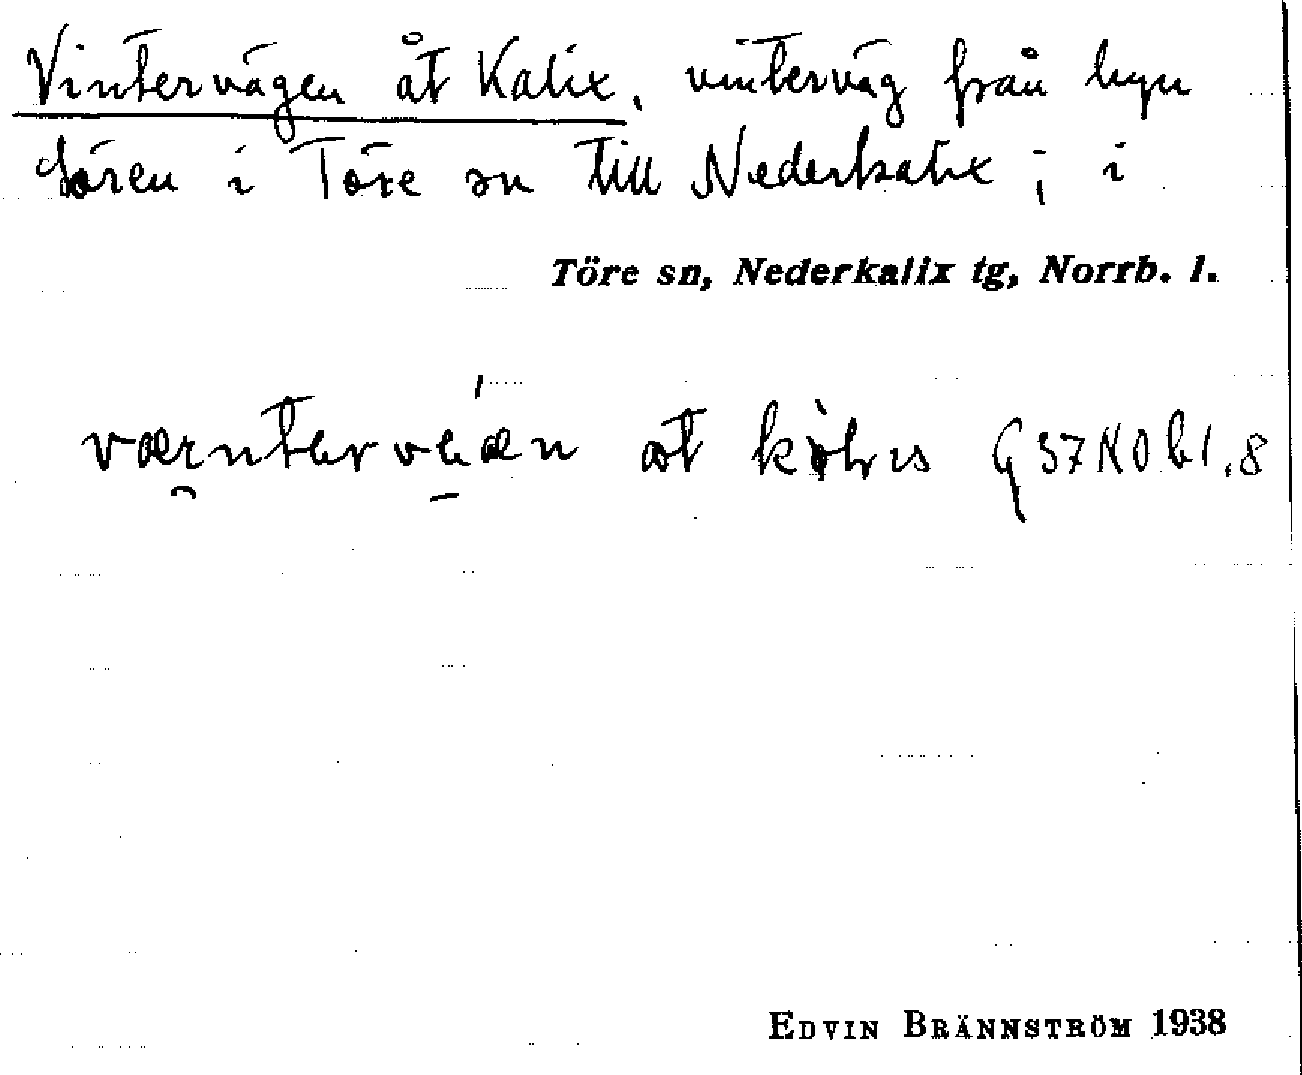 Vintervägen åt Kalix, vinterväg från byn
Sören i Töre sn till Nederkalix; i
Töre sn, Nederkalix tg, Norrb. l.
åt G 37 NO bl. 8
EDVIN BRÄNNSTRÖM 1938